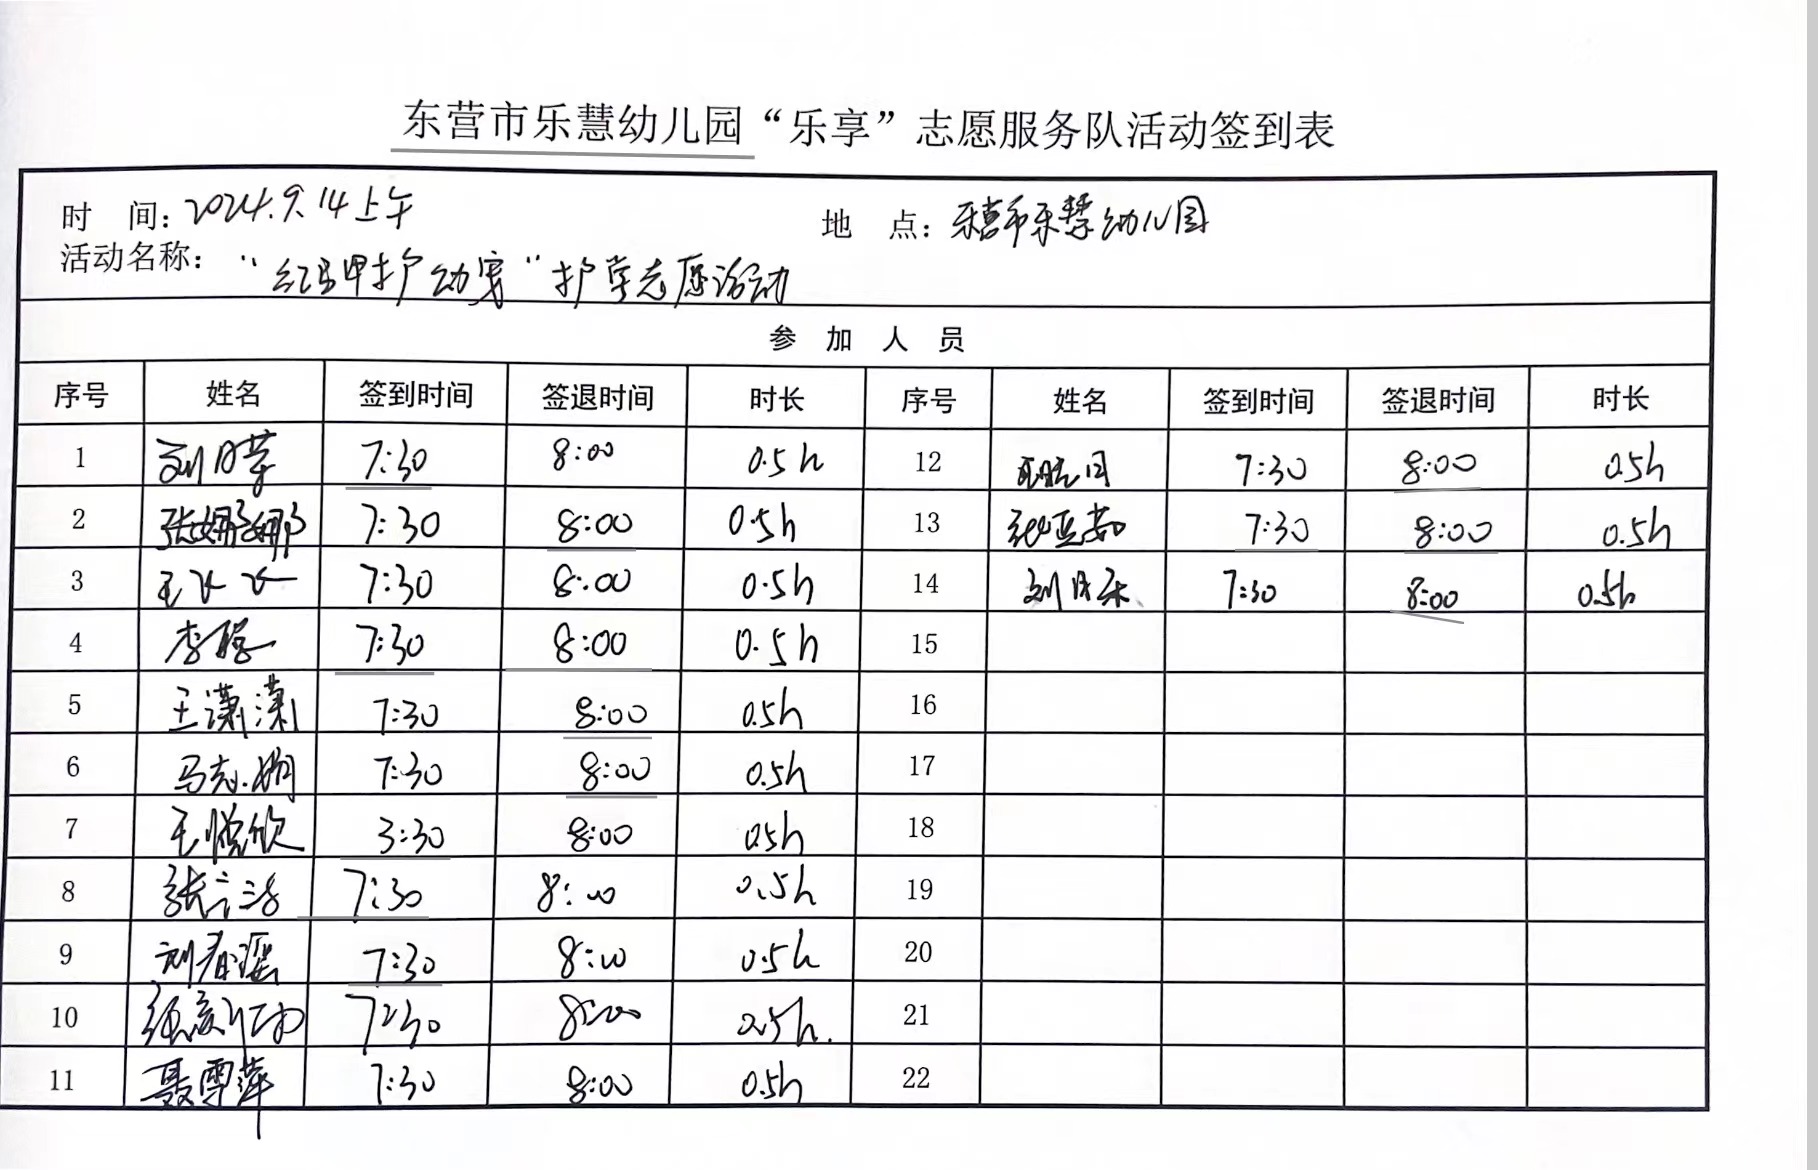 东营市乐慧幼儿园“乐享”志愿服务队活动签到表
时 间: 2024.9.14上午 地 点: 东营市乐慧幼儿园
活动名称: “红马甲护幼穿”护学志愿活动
参 加 人 员
序号 姓名 签到时间 签退时间 时长 序号 姓名 签到时间 签退时间 时长
1 刘月芹 7:30 8:00 0.5h 12 7:30 8:00 0.5h
2 张娜娜 7:30 8:00 0.5h 13 张亚茹 7:30 8:00 0.5h
3 王飞飞 7:30 8:00 0.5h 14 刘月禾 7:30 8:00 0.5h
4 李 7:30 8:00 0.5h 15
5 王潇潇 7:30 8:00 0.5h 16
6 马志娟 7:30 8:00 0.5h 17
7 王悦欣 3:30 8:00 0.5h 18
8 张 7:30 8:00 0.5h 19
9 刘春瑶 7:30 8:00 0.5h 20
10 7:30 8:00 0.5h. 21
11 聂雪萍 7:30 8:00 0.5h 22